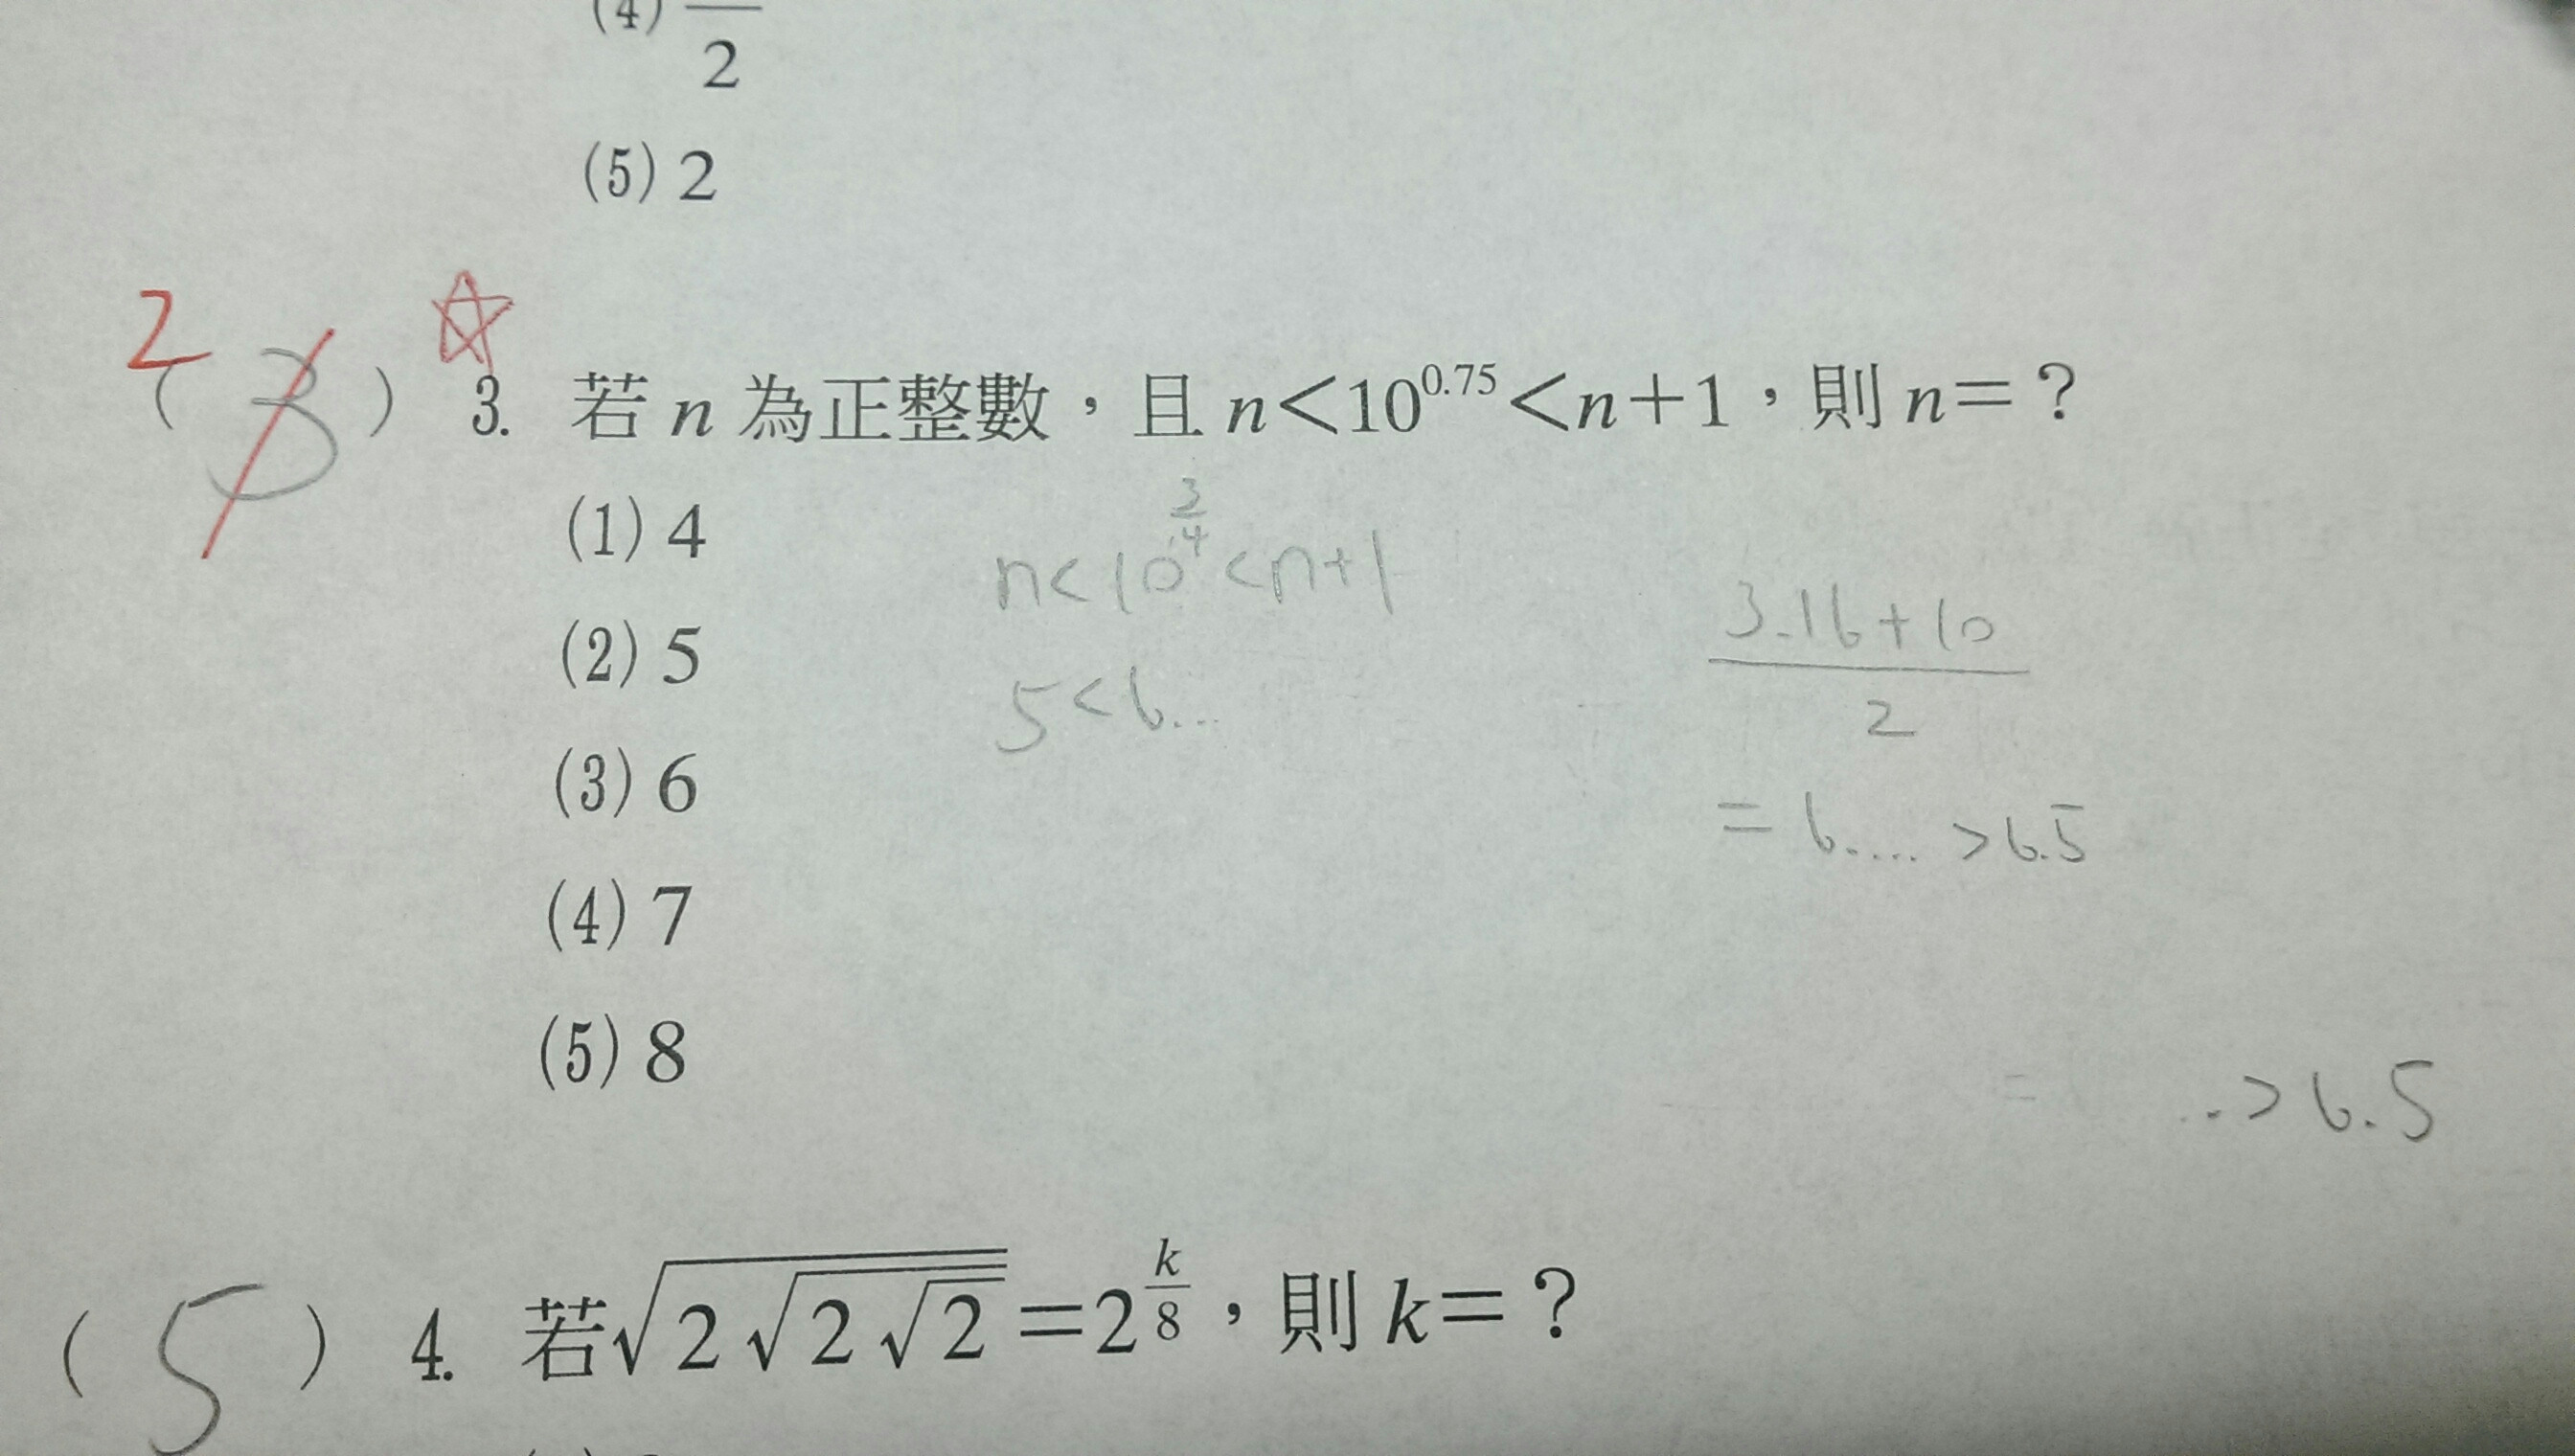 (4) 2
(5) 2
2
( 3 ) ☆ 3. 若 n 為正整數，且 n＜10^0.75＜n＋1，則 n＝？
(1) 4
n<10^(3/4)<n+1
(2) 5
5<6...
(3) 6
(4) 7
(5) 8
(3.16+10)/2
=6.... >6.5
= ..>6.5
( 5 ) 4. 若√(2√(2√2))＝2^(k/8)，則 k＝？